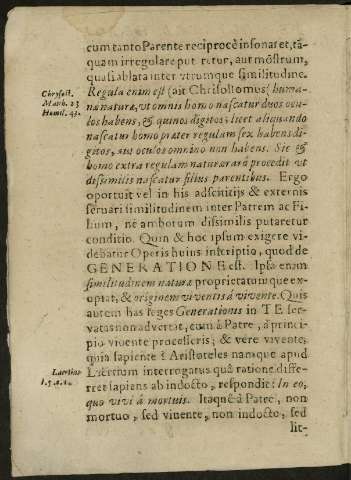 cum tanto Parente reciprocè insonaret, tã-
quam irregulare putetur, aut mõstrum,
quasi ablata inter vtrumque similitudine.
Chrysost.
Math. 23
Homil. 43.
Regula enim est (ait Chrisostomus) huma-
næ naturæ, vt omnis homo nascatur duos ocu
los habens, & quinos digitos: licet aliquando
nascatur homo præter regulam sex habens di-
gitos, aut oculos omnino non habens. Sic &
homo extra regulam naturæ rarò procedit vt
dissimilis nascatur filius parentibus. Ergo
oportuit vel in his adscititijs & externis
seruari similitudinem inter Patrem ac Fi-
lium, ne amborum dissimilis putaretur
conditio. Quin & hoc ipsum exigere vi-
debatur Operis huius inscriptio, quod de
GENERATIONE est. Ipsa enim
similitudinem naturæ proprietatumque ex-
optat, & originem viventis à vivente. Quis
autem has leges Generationis in TE ser-
vatas non advertat, cum à Patre, à princi-
pio vivente processeris; & vere vivente,
quia sapiente? Aristoteles namque apud
Laertius
l. 5. c. 1.
Laertium interrogatus quâ ratione diffe-
rret sapiens ab indocto, respondit: In eo,
quo vivi à mortuis. Itaque à Patre, non
mortuo, sed vivente, non indocto, sed
sit-